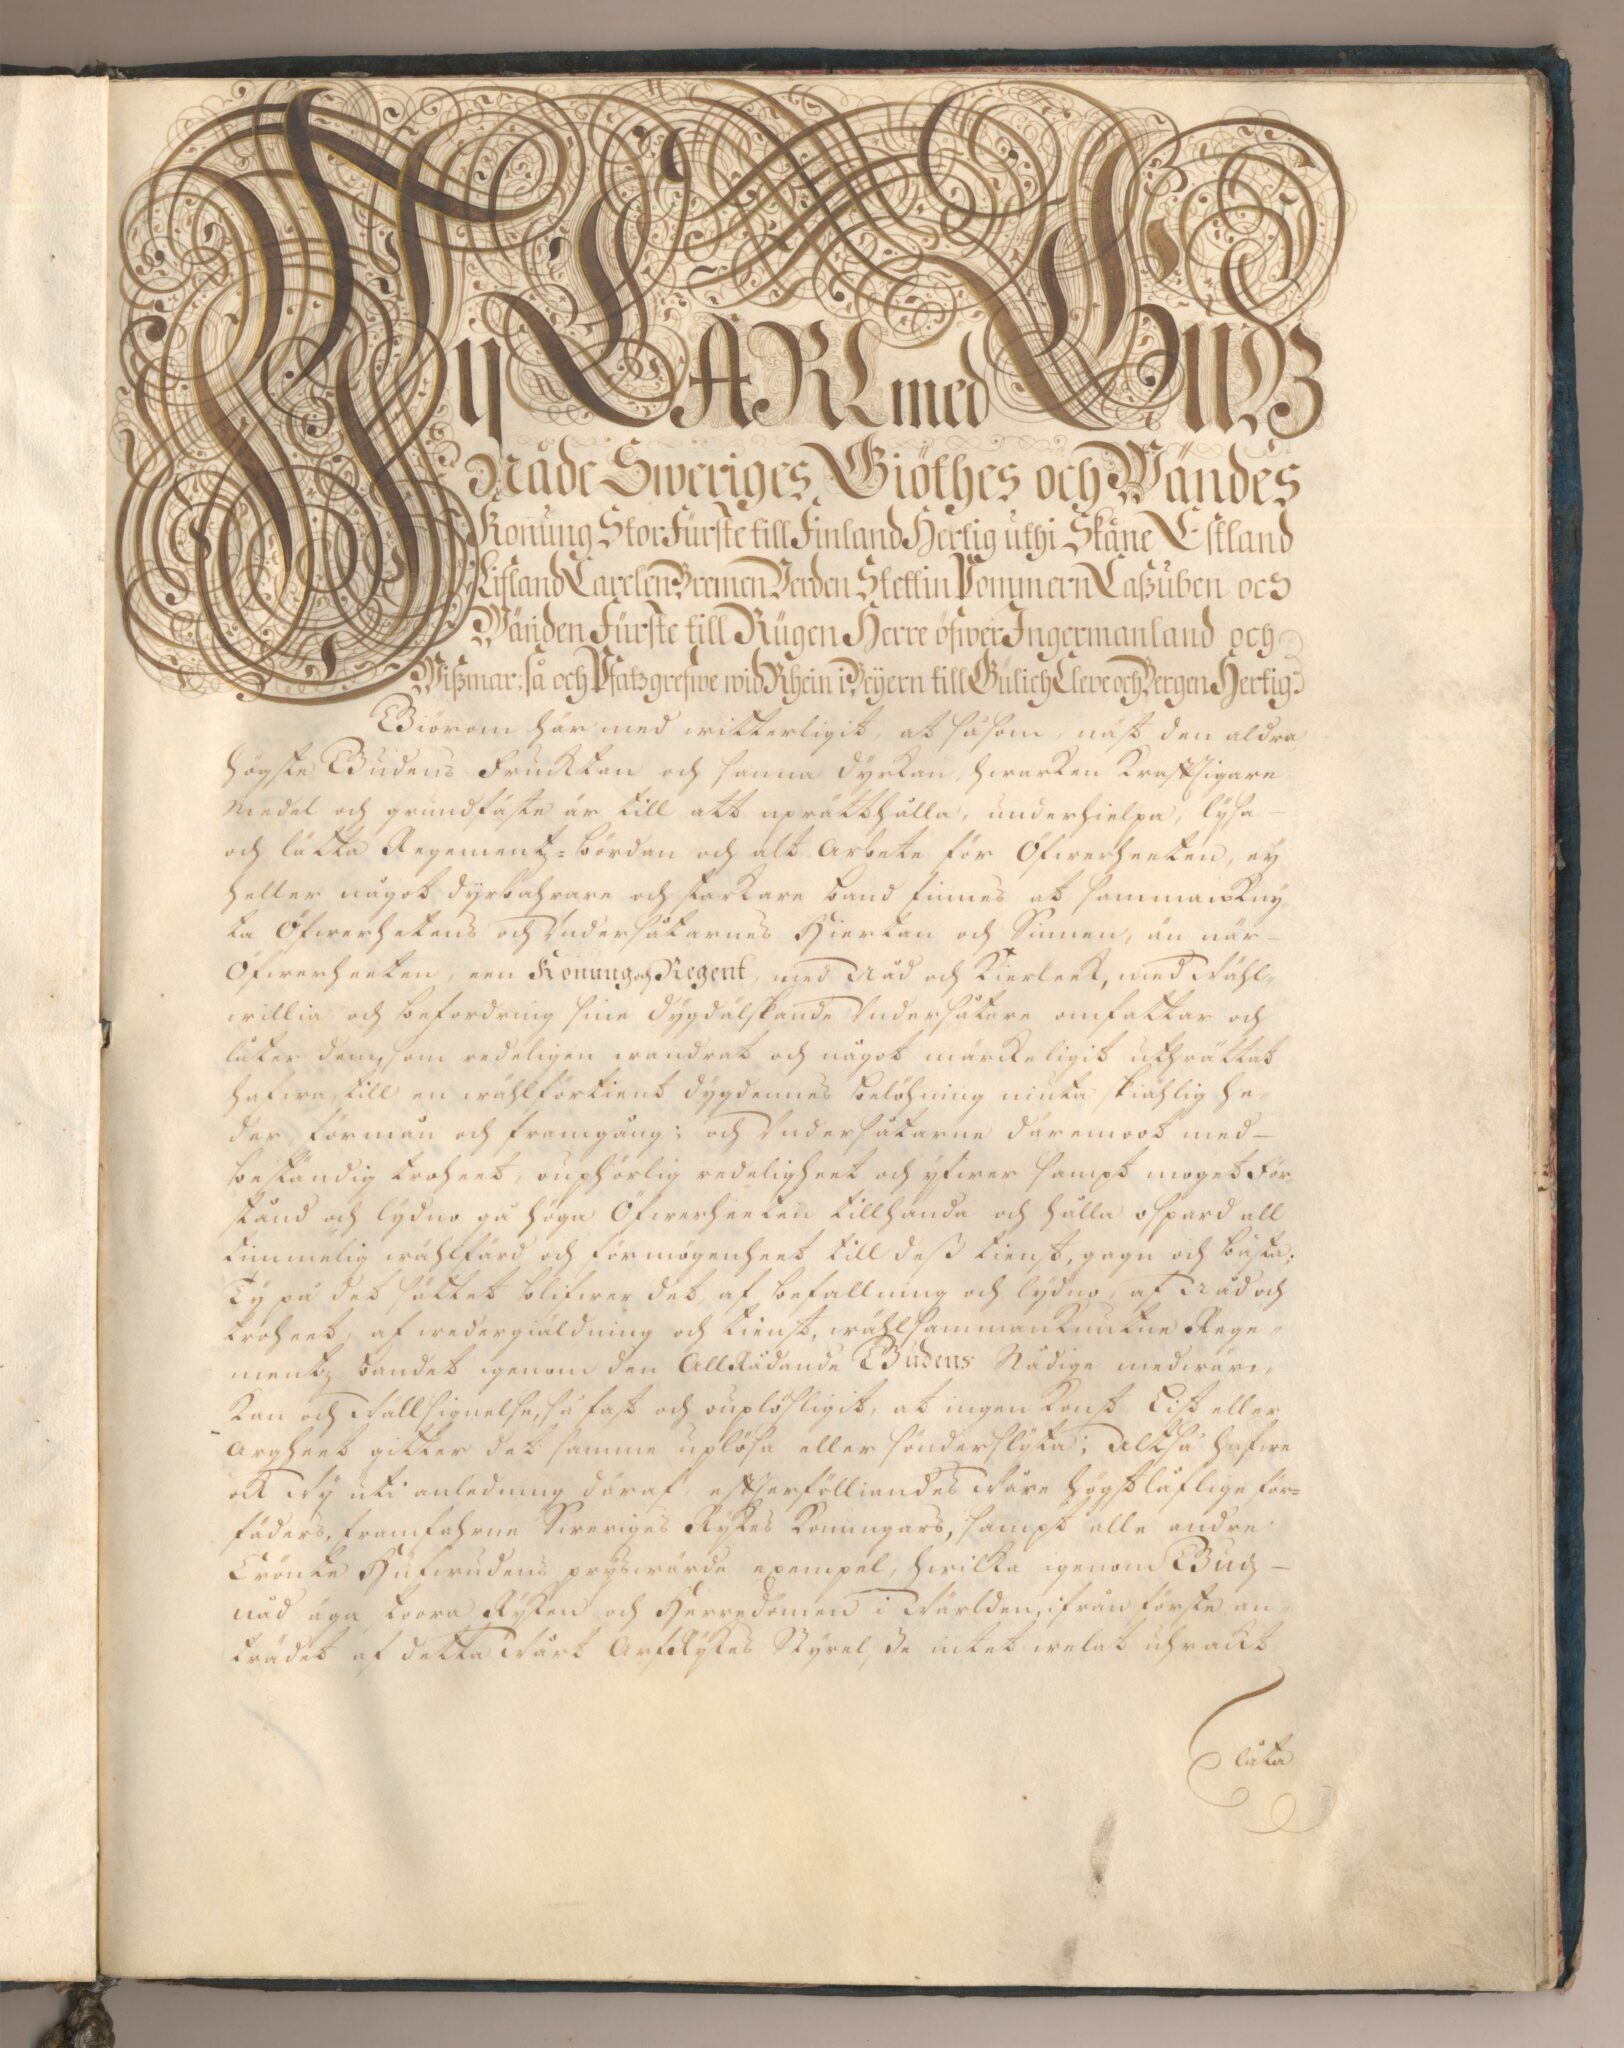 Wy CARL med GUDz
Nåde Sweriges Giöthes och Wändes
Konung StorFürste till Finland Hertig uthi Skåne Estland
Lifland Carelen Bremen Verden Stettin Pommern Caßuben och
Wänden Fürste till Rügen Herre öfwer Ingermanland och
Wißmar: så och Pfatzgrefwe wid Rhein i Beÿern till Gülich Cleve och Bergen Hertig.
Giörom här med witterligit, at såsom, näst den aldra
högste Gudens Fruchtan och sanna dyrkan, hwarken krafftigare
medel och grundfäste är till att uprätthålla, underhielpa, lysa
och lätta Regementz-bördan och alt arbete för Öfwerheeten, ey
heller något dyrbahrare och starkare band finnes at sammanckny
ta Öfwerhetens och Undersåtarnes Hiertan och Sinnen, än när
Öfwerheeten, een Konung och Regent, med Nåd och Kierleek, med Wähl-
willia och befordring sine dygdälskande Undersåtare omfattar och
låter dem, som redeligen wandrat och något märckeligit uthrättat
hafwa, till en wählförtient dygdennes belöhning niuta skiählig he-
der, förmån och framgång; och Undersåtarne däremoot med
beständig troheet, ouphörlig redeligheet och yfwer sampt moget För
stånd och lydno gå höga Öfwerheeten tillhanda och hålla ospard all
timmelig wählfärd och förmögenheet till deß tienst, gagn och bästa;
Ty på det sättet blifwer det, af befallning och lydno, af Nåd och
troheet, af wedergiäldning och tienst, wählsammanknutne Rege-
mentz bandet igenom den AllRådande Gudens Nådige medwär-
kan och Wällsignelse, så fast och ouplösligit, at ingen konst, List eller
Argheet gitter det samme uplösa eller sönderslyta; Altså hafwe
ock Wy uti anledning däraf, effterfölliandes Wåre högstlåflige för-
fäders, framfahrne Sweriges Rykes Konungars, sampt alle andre
Crönte Hufwudens prysswärde exempel, hwilka igenom Gudz
nåd äga stoora Ryken och Herredömen i Wärlden, ifrån förste an-
trädet af detta Wårt ArfRykes Styrelse intet welat uhracht
låta